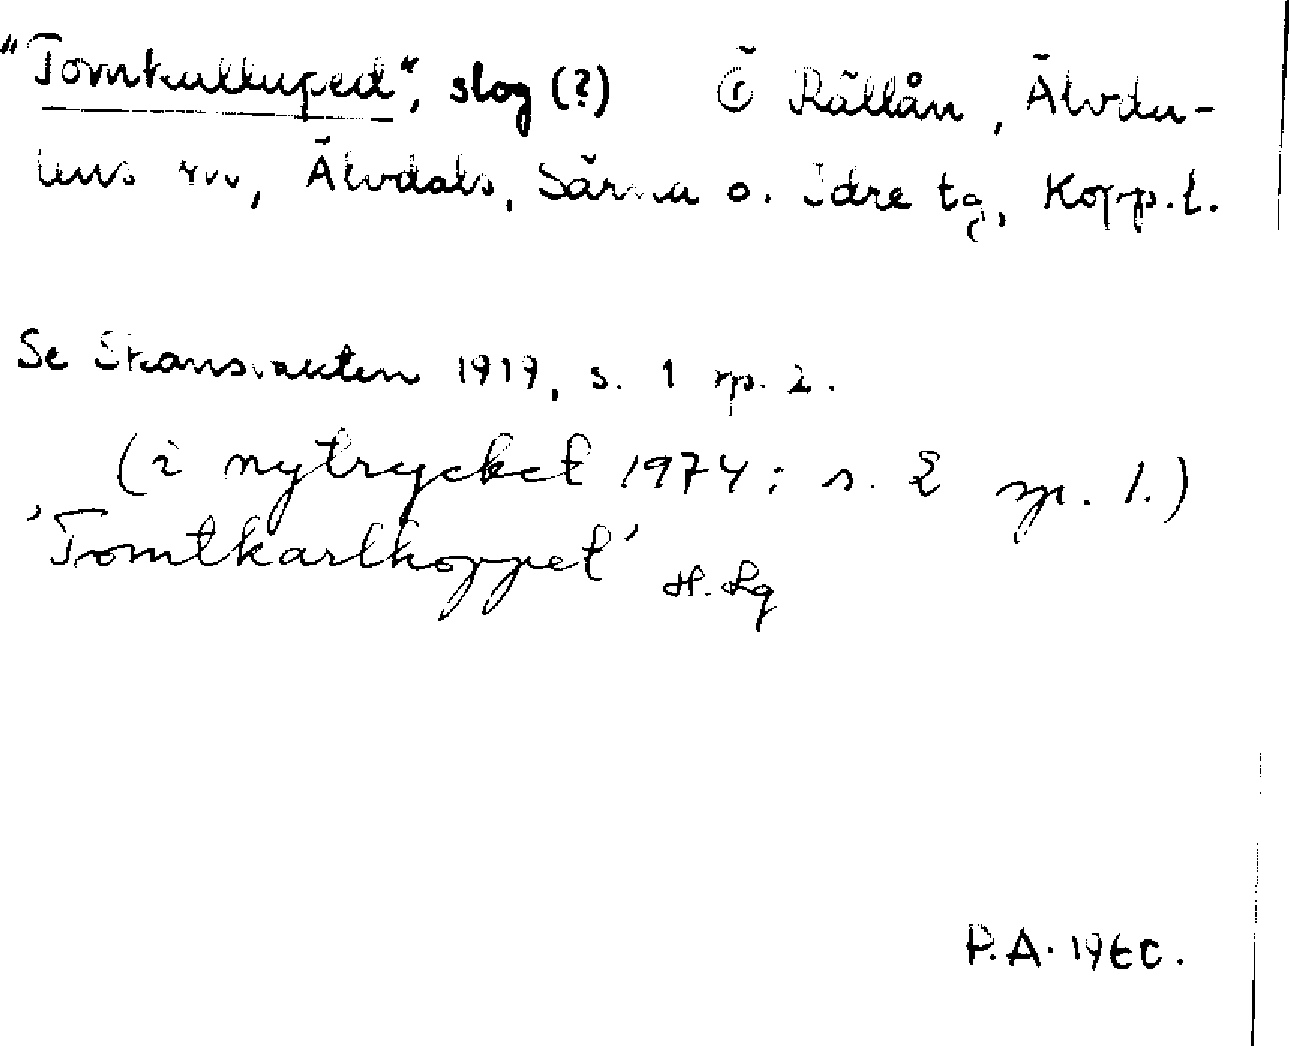 "Tomtkulluped", slog (?) Ö Rällån, Älvda-
lens rvv, Älvdals, Särna o. Idre tg, Kopp. l.
Se Skansvakten 1919, s. 1 sp. 2.
(i nytrycket 1974: s. 2 sp. 1.)
'Tomtkarlhoppet' H. Lg
P.A. 1960.